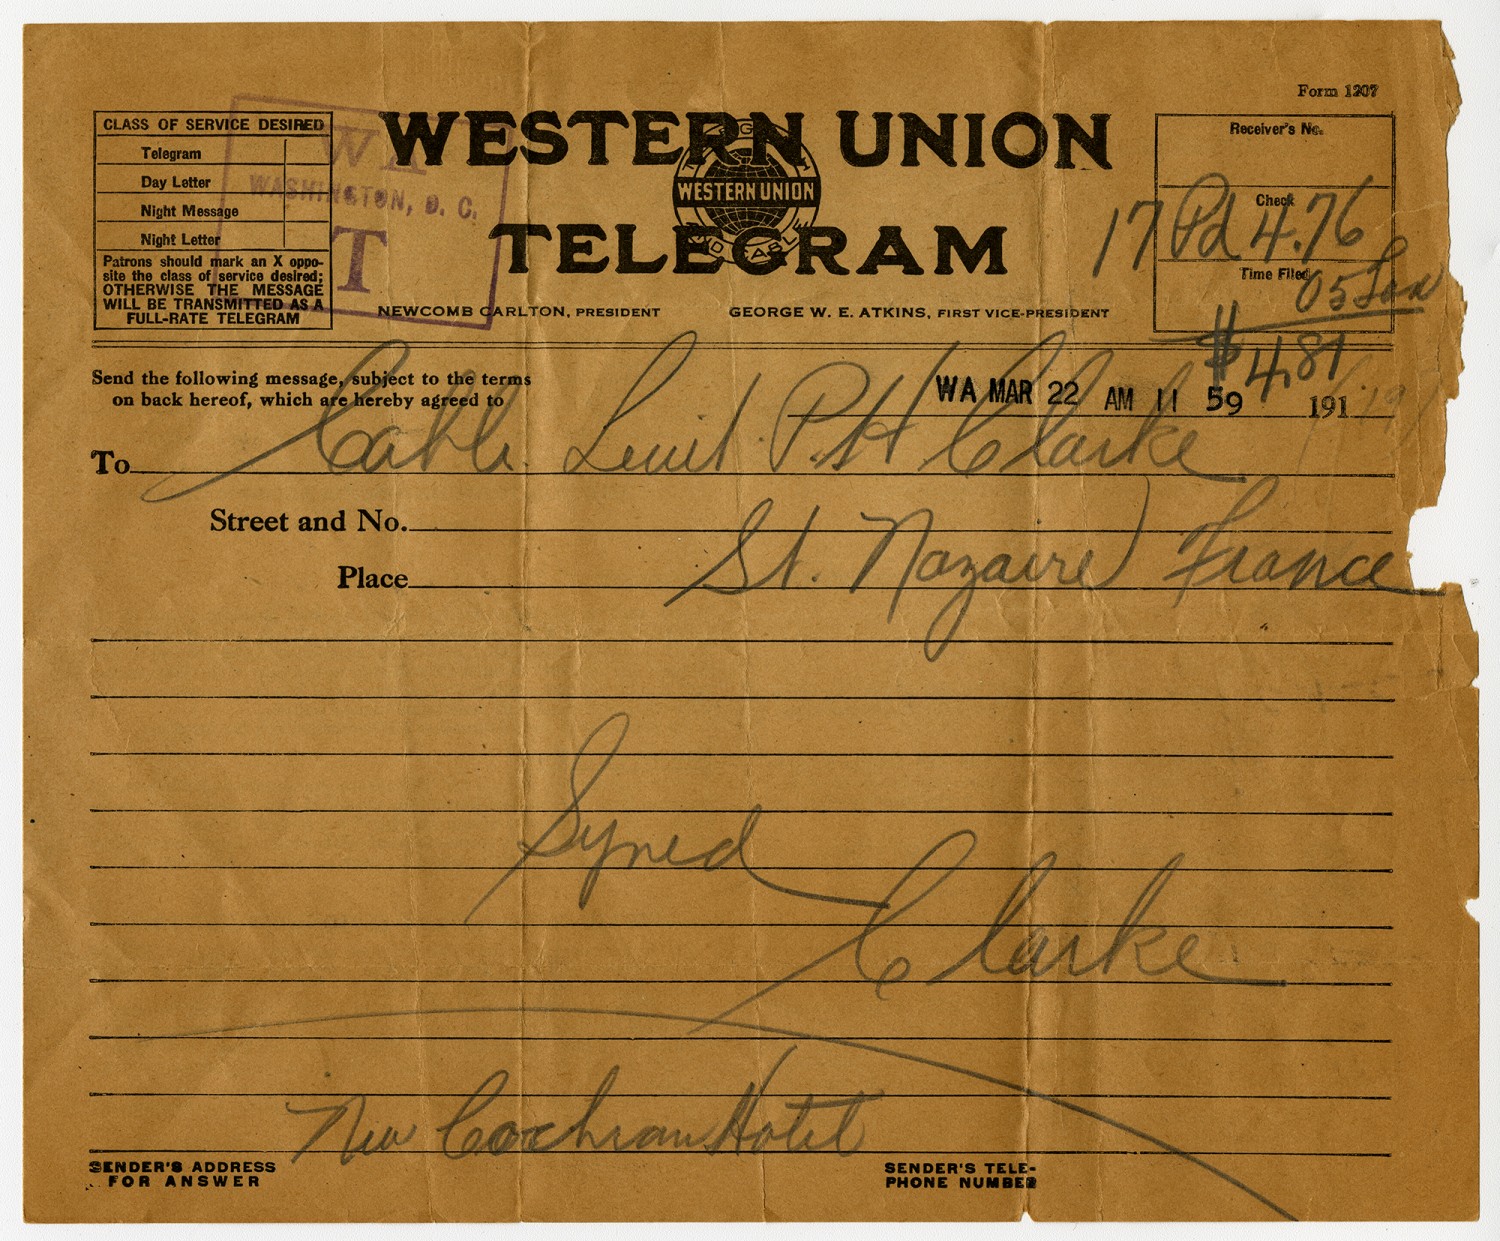 Form 1207
CLASS OF SERVICE DESIRED
Telegram
Day Letter
Night Message
Night Letter
Patrons should mark an X oppo-
site the class of service desired;
OTHERWISE THE MESSAGE
WILL BE TRANSMITTED AS A
FULL-RATE TELEGRAM
WA
WASHINGTON, D. C.
T
WESTERN UNION
WESTERN UNION
TELEGRAM
NEWCOMB CARLTON, PRESIDENT GEORGE W. E. ATKINS, FIRST VICE-PRESIDENT
Receiver's No.
Check
17 Pd 4.76
Time Filed
05 Tax
$ 4.81
Send the following message, subject to the terms
on back hereof, which are hereby agreed to
WA MAR 22 AM 11 59 191
To Cable Leuit P.H Clarke
Street and No.
Place St. Nazaire France
Syned
Clarke
New Cochran Hotel
SENDER'S ADDRESS
FOR ANSWER
SENDER'S TELE-
PHONE NUMBER